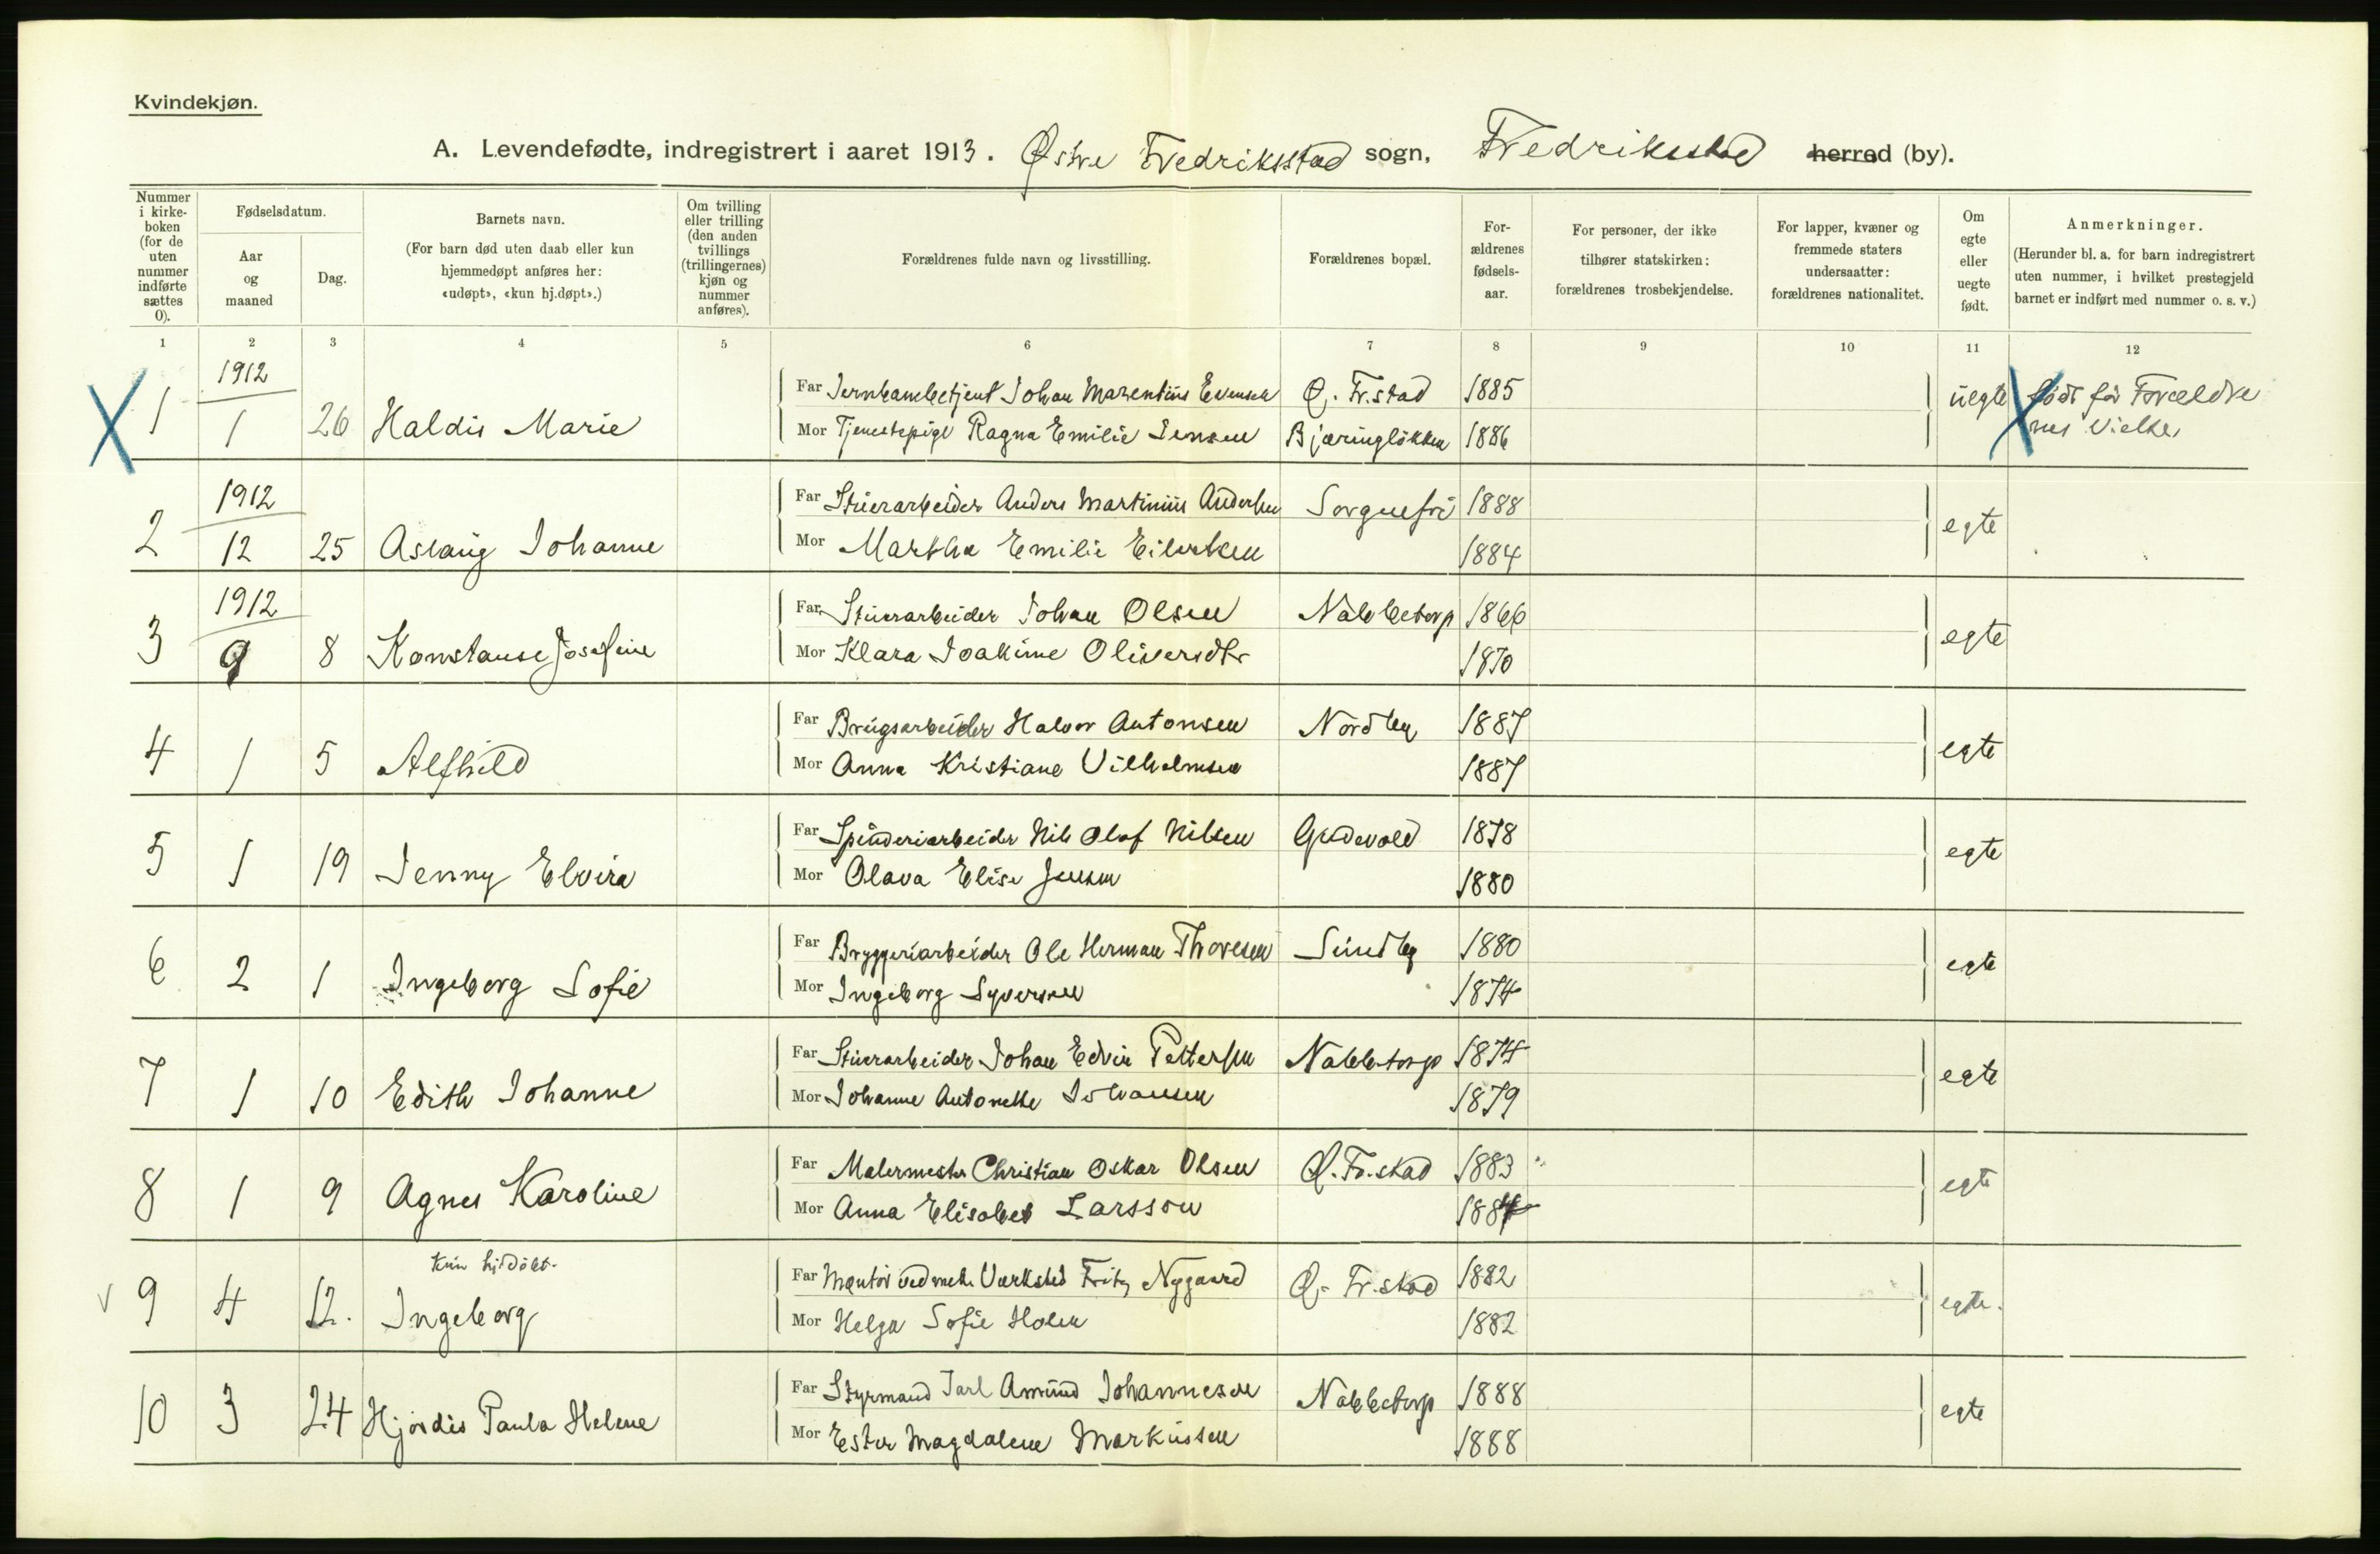 Kvindekjøn.
A. Levendefødte, indregistrert i aaret 1913. Østre Fredriksstad sogn, Fredriksstad herred (by).
Nummer i kirke-boken (for de uten nummer indførte sættes 0).
Fødselsdatum.
Aar og maaned
Dag.
Barnets navn.
(For barn død uten daab eller kun hjemmedøpt anføres her: «udøpt», «kun hj.døpt».)
Om tvilling eller trilling (den anden tvillings (trillingernes) kjøn og nummer anføres).
Forældrenes fulde navn og livsstilling.
Forældrenes bopæl.
For-ældrenes fødsels-aar.
For personer, der ikke tilhører statskirken: forældrenes trosbekjendelse.
For lapper, kvæner og fremmede staters undersaatter: forældrenes nationalitet.
Om egte eller uegte født.
Anmerkninger.
(Herunder bl. a. for barn indregistrert uten nummer, i hvilket prestegjeld barnet er indført med nummer o. s. v.)
1 2 3 4 5 6 7 8 9 10 11 12
X 1 1912 1 26 Haldis Marie Far Jernbanebetjent Johan Marentius Evensen Ø. Fr.stad 1885 uegte X født før Forældre
Mor Tjenestepige Ragna Emilie Jensen Bjæringløkken 1886 nes Vielse
2 1912 12 25 Aslaug Johanne Far Stuerarbeider Anders Martinius Andersen Sorgenfri 1888 egte
Mor Martha Emilie Eilertsen 1884
3 1912 9 8 Konstanse Josefine Far Stuerarbeider Johan Olsen Nabbetorp 1866 egte
Mor Klara Joakime Oliversdtr 1870
4 1 5 Alfhild Far Brugsarbeider Halvor Antonsen Nordby 1887 egte
Mor Anna Kristiane Vilhelmsen 1887
5 1 19 Jenny Elvira Far Spinderiarbeider Nils Olof Nilsen Gudevold 1878 egte
Mor Olava Elise Jensen 1880
6 2 1 Ingeborg Sofie Far Bryggeriarbeider Ole Herman Thoresen Sundby 1880 egte
Mor Ingeborg Syversen 1874
7 1 10 Edith Johanne Far Stuerarbeider Johan Edvin Pettersen Nabbetorp 1874 egte
Mor Johanne Antonette Johansen 1879
8 1 9 Agnes Karoline Far Malermester Christian Oskar Olsen Ø. Fr.stad 1883 egte
Mor Anna Elisabet Larsson 1884
kun hj.døbt.
v 9 4 12. Ingeborg Far Montør ved mek. Værksted Fritz Nygaard Ø. Fr.stad 1882 egte.
Mor Helga Sofie Holen 1882
10 3 24 Hjørdis Paula Helene Far Styrmand Jarl Amund Johannesen Nabbetorp 1888 egte
Mor Ester Magdalene Markussen 1888